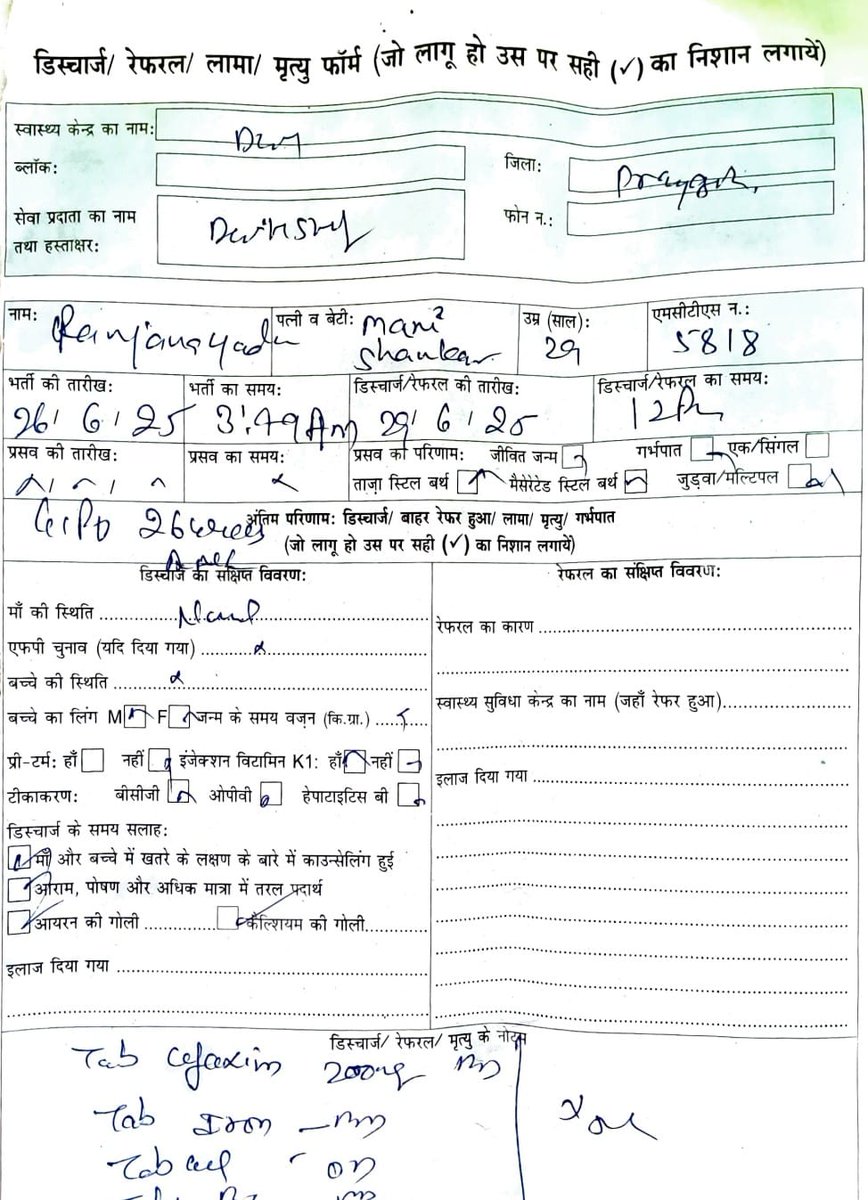 डिस्चार्ज/ रेफरल/ लामा/ मृत्यु फॉर्म (जो लागू हो उस पर सही (✓) का निशान लगायें)
स्वास्थ्य केन्द्र का नाम:
ब्लॉक:
जिला:
सेवा प्रदाता का नाम
तथा हस्ताक्षर:
फोन न.:
नाम: पत्नी व बेटी: Mani Shankar उम्र (साल): 29 एमसीटीएस न.: 5818
भर्ती की तारीख: 26/6/25 भर्ती का समय: 3:49 Am डिस्चार्ज/रेफरल की तारीख: 29/6/25 डिस्चार्ज/रेफरल का समय:
प्रसव की तारीख: प्रसव का समय: प्रसव का परिणाम: जीवित जन्म गर्भपात एक/सिंगल
ताज़ा स्टिल बर्थ मैसेरेटेड स्टिल बर्थ जुड़वा/मल्टिपल
अंतिम परिणाम: डिस्चार्ज/ बाहर रेफर हुआ/ लामा/ मृत्यु/ गर्भपात
(जो लागू हो उस पर सही (✓) का निशान लगायें)
डिस्चार्ज का संक्षिप्त विवरण:
माँ की स्थिति
एफपी चुनाव (यदि दिया गया)
बच्चे की स्थिति
बच्चे का लिंग M F जन्म के समय वज़न (कि.ग्रा.)
प्री-टर्म: हाँ नहीं इंजेक्शन विटामिन K1: हाँ नहीं
टीकाकरण: बीसीजी ओपीवी हेपाटाइटिस बी
डिस्चार्ज के समय सलाह:
माँ और बच्चे में खतरे के लक्षण के बारे में काउन्सेलिंग हुई
आराम, पोषण और अधिक मात्रा में तरल पदार्थ
आयरन की गोली कैल्शियम की गोली
इलाज दिया गया
रेफरल का संक्षिप्त विवरण:
रेफरल का कारण
स्वास्थ्य सुविधा केन्द्र का नाम (जहाँ रेफर हुआ)
इलाज दिया गया
डिस्चार्ज/ रेफरल/ मृत्यु के नोट्स
Tab 200mg
Tab Iron
Tab